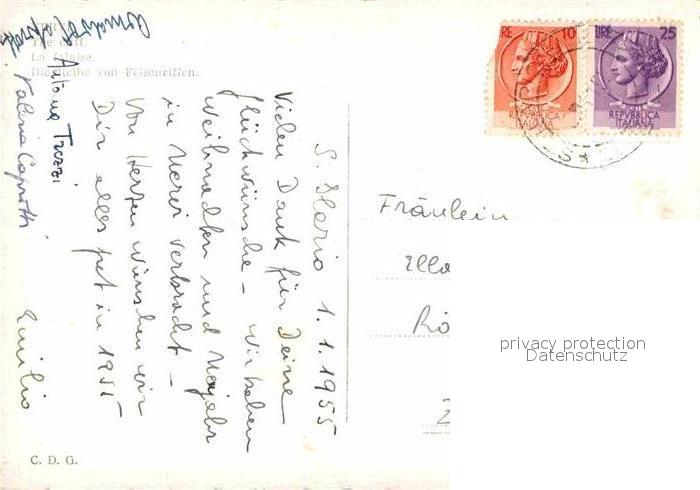 The Cliff.
La falaise.
Die Reihe von Felsenriffen.
S. Ilario 1.1.1955
Vielen Dank für Deine
Glückwünsche - wir haben
Weihnachten und Neujahr
in Nervi verbracht -
Von Herzen wünschen wir
Dir alles gut in 1955
Emilio
Antonio Tuzzi
Valeria Caprotti
C. D. G.
RE 10
REPVBBLICA
ITALIANA
LIRE 25
REPVBBLICA
ITALIANA
Fräulein
Illa
Rö
Z
privacy protection
Datenschutz